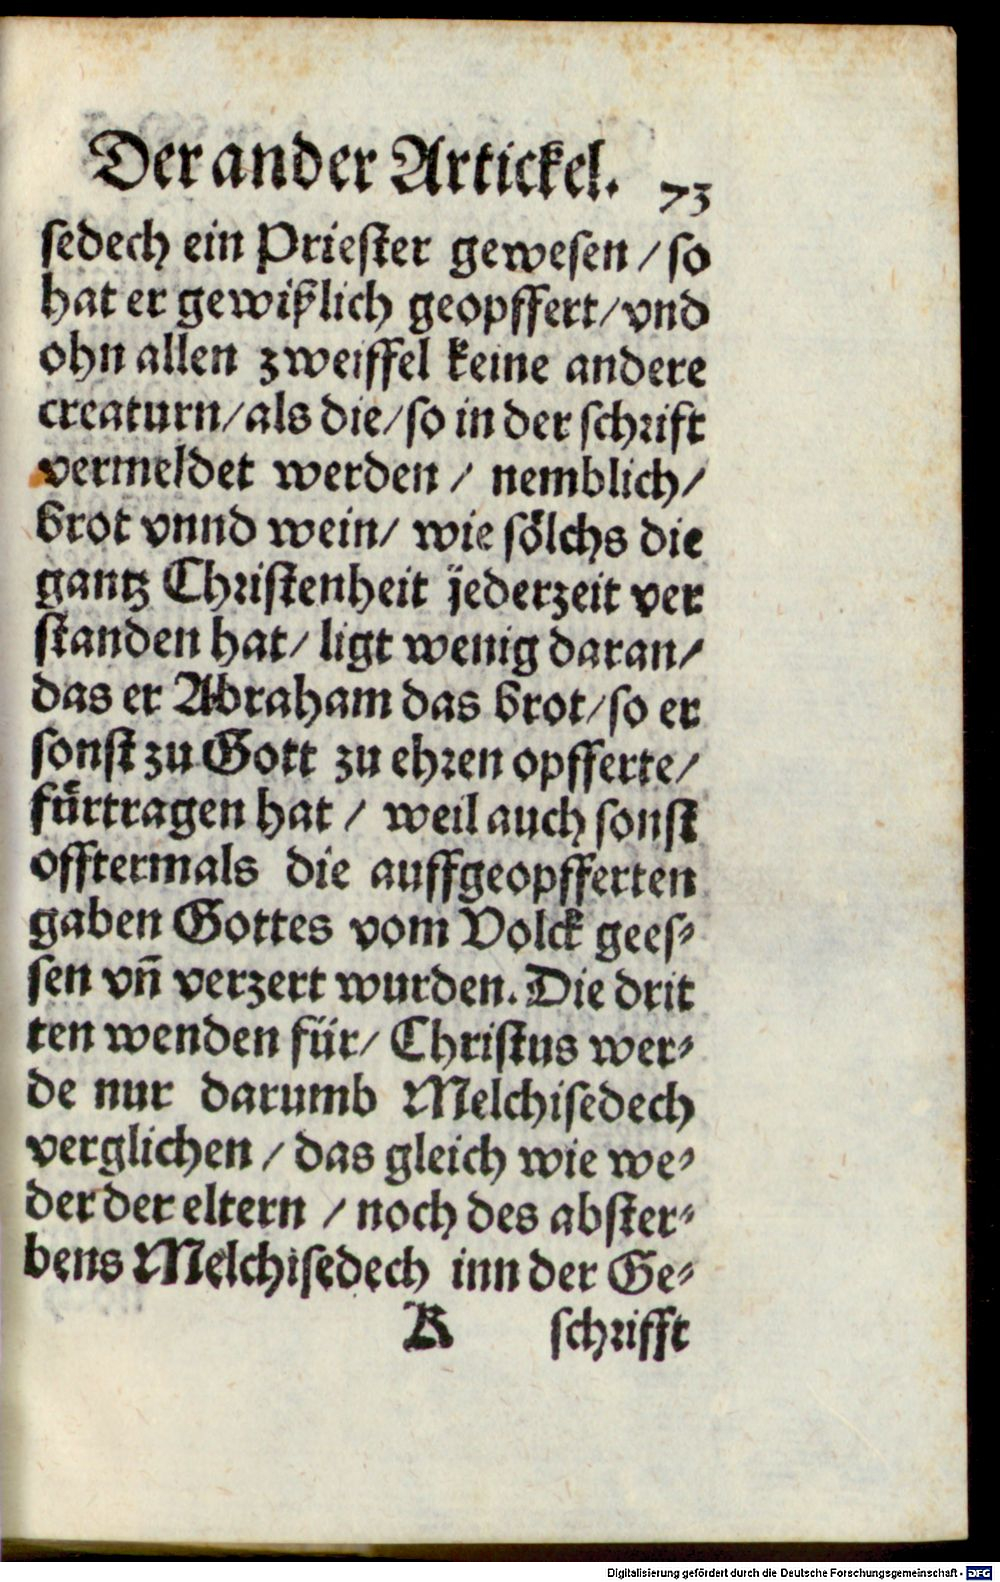 Der ander Artickel. 73
sedech ein Priester gewesen / so
hat er gewißlich geopffert / vnd
ohn allen zweiffel keine andere
creaturn / als die / so in der schrift
vermeldet werden / nemblich /
brot vnnd wein / wie sölchs die
gantz Christenheit jederzeit ver
standen hat / ligt wenig daran /
das er Abraham das brot / so er
sonst zu Gott zu ehren opfferte /
fürtragen hat / weil auch sonst
offtermals die auffgeopfferten
gaben Gottes vom Volck gees⸗
sen vn̄ verzert wurden. Die drit
ten wenden für / Christus wer⸗
de nur darumb Melchisedech
verglichen / das gleich wie we⸗
der der eltern / noch des abster⸗
bens Melchisedech inn der Ge⸗
K schrifft
Digitalisierung gefördert durch die Deutsche Forschungsgemeinschaft - DFG